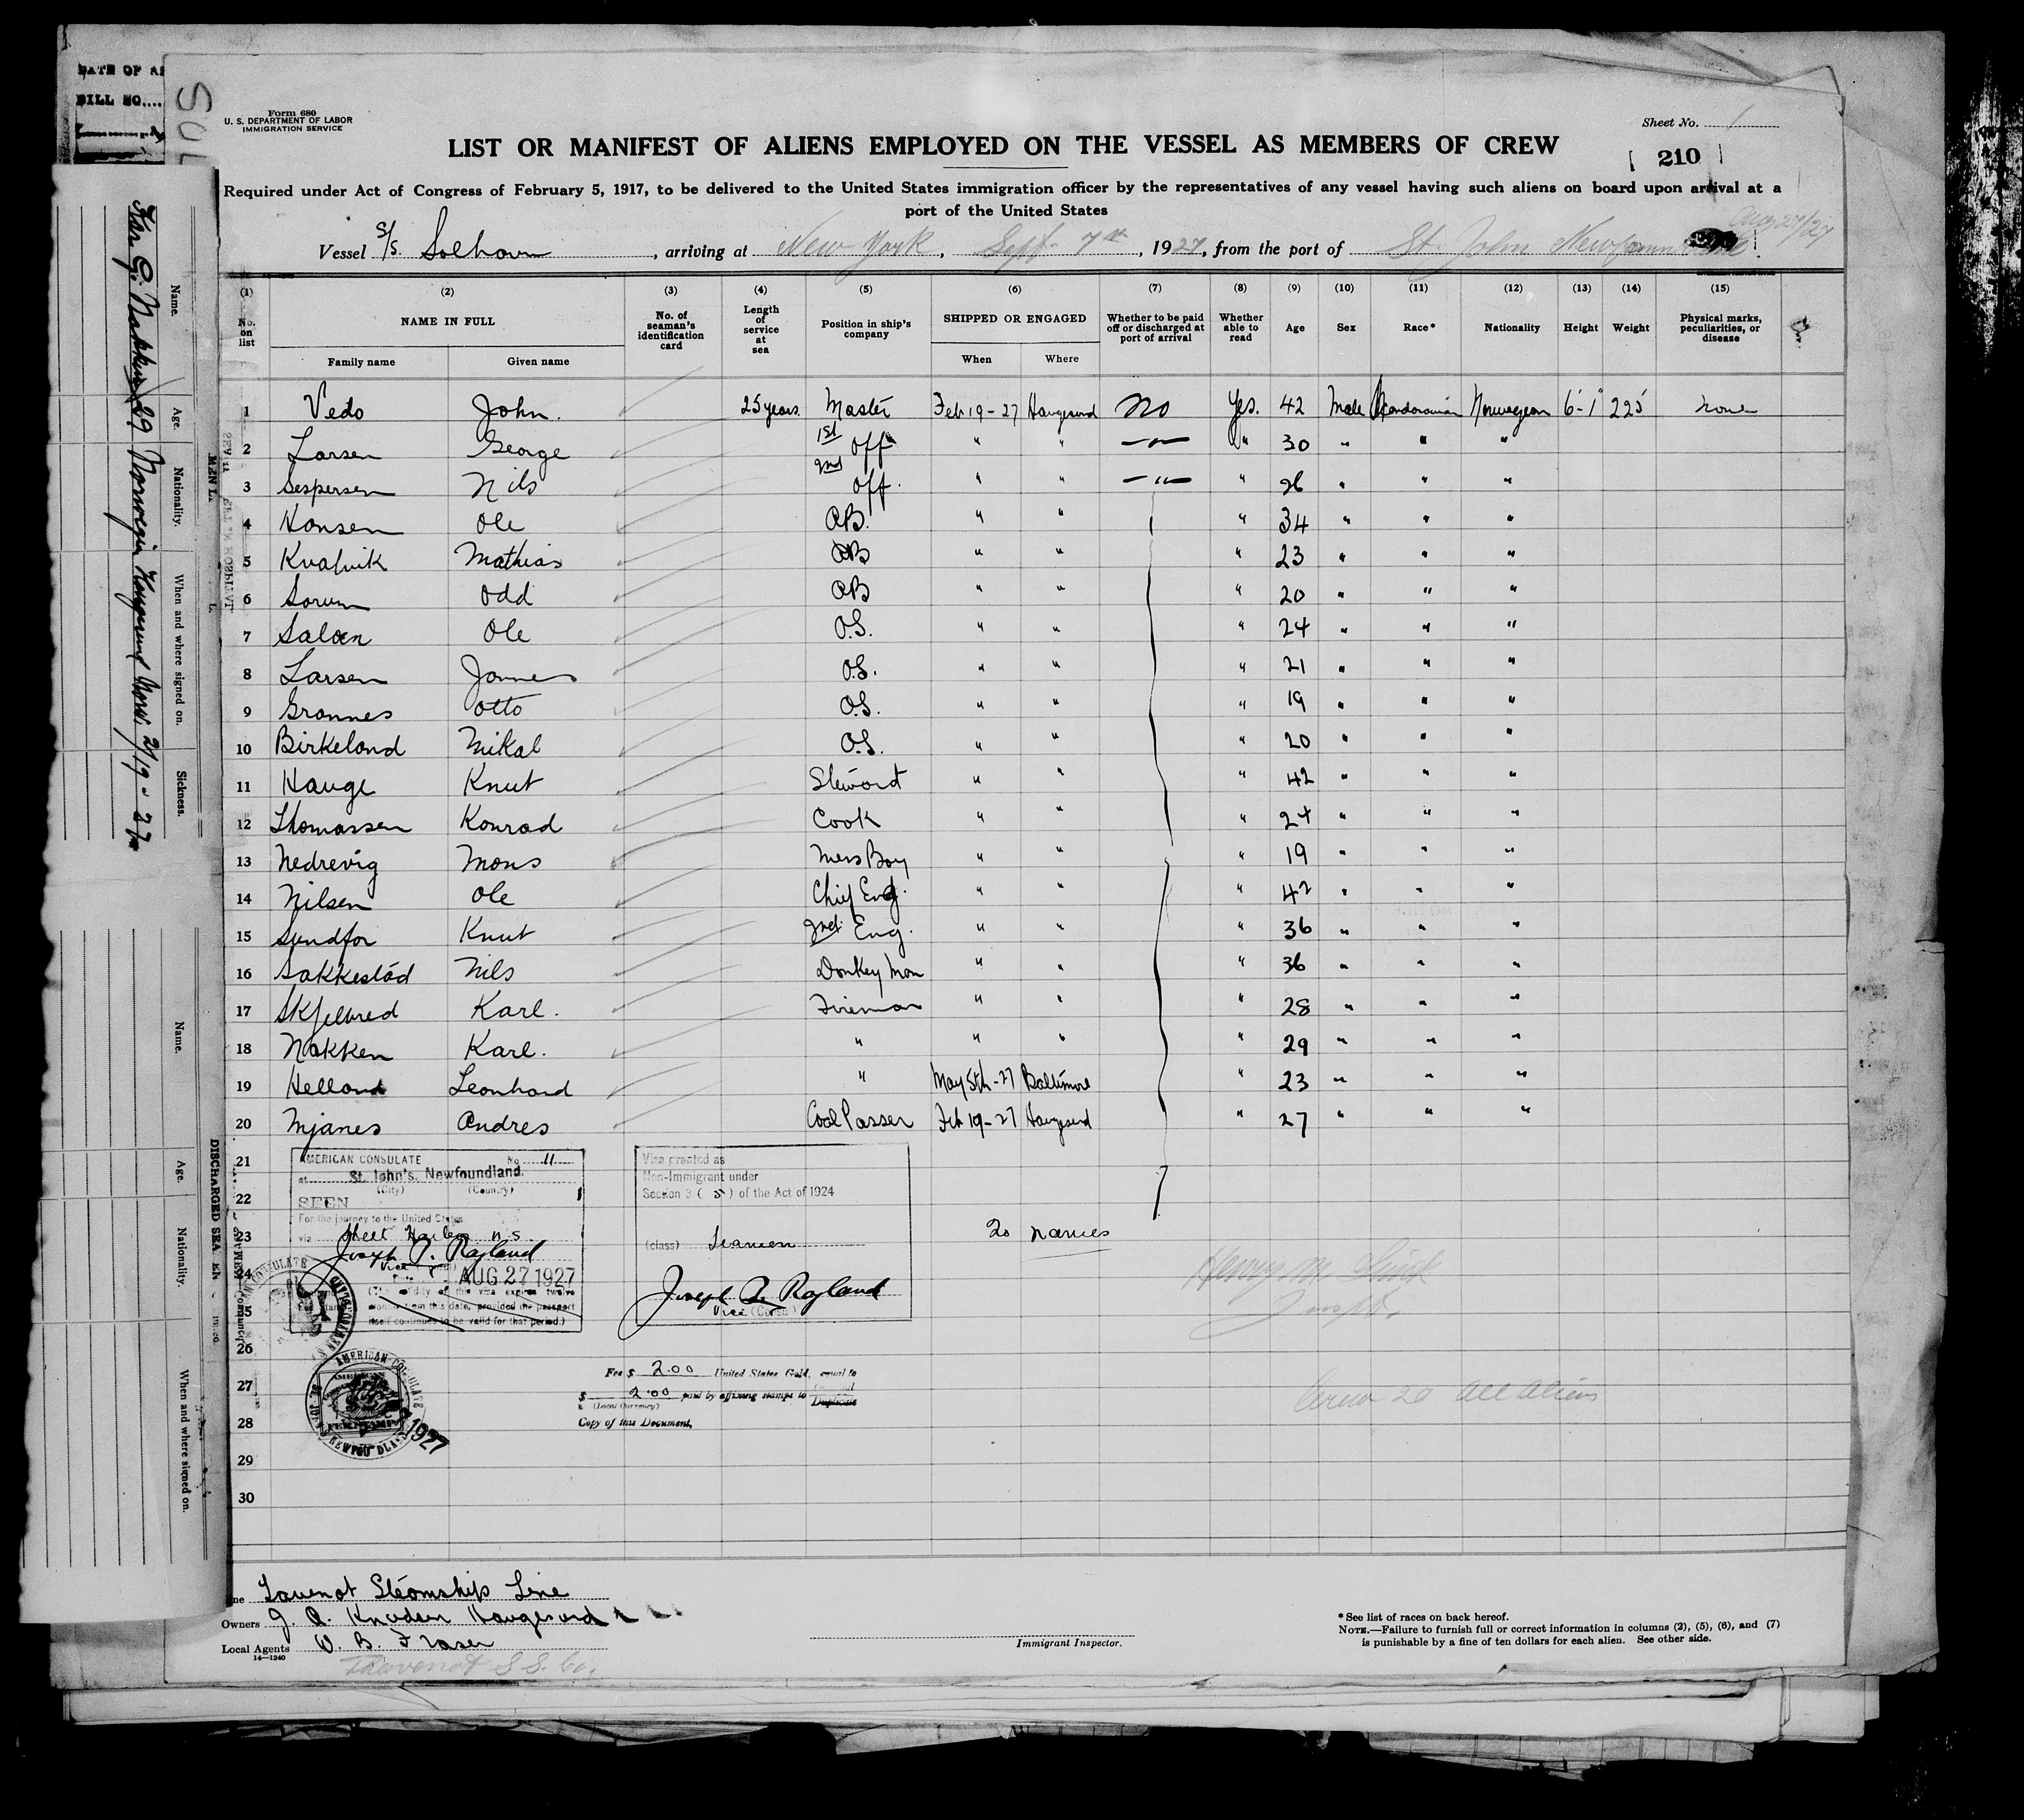 DATE OF
BILL NO....
Form 680
U. S. DEPARTMENT OF LABOR
IMMIGRATION SERVICE
Sheet No. 1
LIST OR MANIFEST OF ALIENS EMPLOYED ON THE VESSEL AS MEMBERS OF CREW
210
Required under Act of Congress of February 5, 1917, to be delivered to the United States immigration officer by the representatives of any vessel having such aliens on board upon arrival at a
port of the United States
Aug 27/27
Vessel S/S. Solhavn, arriving at New York, Sept 7th, 1927, from the port of St. John Newfoundland
(1) (2) (3) (4) (5) (6) (7) (8) (9) (10) (11) (12) (13) (14) (15)
No. on list NAME IN FULL No. of seaman's identification card Length of service at sea Position in ship's company SHIPPED OR ENGAGED Whether to be paid off or discharged at port of arrival Whether able to read Age Sex Race* Nationality Height Weight Physical marks, peculiarities, or disease
Family name Given name When Where
1 Vedo John. 25 years. Master Feb 19-27 Haugesund No Yes. 42 Male Scandanavian Norwegian 6'-1" 225 none
2 Larsen George 1st Off " " -"- " 30 " " "
3 Jespersen Nils 2nd Off. " " -"- " 26 " " "
4 Hansen Ole AB. " " " 34 " " "
5 Kvalvik Mathias AB " " " 23 " " "
6 Sorum Odd AB " " " 20 " " "
7 Saloen Ole O.S. " " " 24 " " "
8 Larsen Johannes O.S. " " " 21 " " "
9 Grannes Otto O.S. " " " 19 " " "
10 Birkeland Mikal O.S. " " " 20 " " "
11 Hauge Knut Steward " " " 42 " " "
12 Thomassen Konrad Cook " " " 24 " " "
13 Nedrevig Mons Mess Boy " " " 19 " " "
14 Nilsen Ole Chief Eng. " " " 42 " " "
15 Sundfor Knut 2nd Eng. " " " 36 " " "
16 Sakkestad Nils Donkey Man " " " 36 " " "
17 Skjelbred Karl. Fireman " " " 28 " " "
18 Nakken Karl. " " " " 29 " " "
19 Helland Leonhard " May 5th-27 Baltimore " 23 " " "
20 Mjanes Andres Coal Passer Feb 19-27 Haugesund " 27 " " "
21
22
23
24
25
26
27
28
29
30
AMERICAN CONSULATE No 11
at St. John's, Newfoundland.
(City) (Country)
SEEN
For the journey to the United States
via Sheet Harbor N.S.
Joseph P. Ragland
Vice
AUG 27 1927
(The validity of this visa expires twelve
months from this date, provided the passport
itself continues to be valid for that period.)
Visa granted as
Non-Immigrant under
Section 3 (5) of the Act of 1924
(class) Seamen
Joseph P. Ragland
Vice (Consul)
20 names
Henry M.
Inspt.
Crew 20 All Aliens
AMERICAN CONSULATE
1927
Fee $ 2.00 United States Gold, equal to
$ 2.00 paid by affixing stamps to Duplicate
(Local Currency)
Copy of this Document.
Line Tavenot Steamship Line
Owners J. A. Knudsen Haugesund
Local Agents W. B. Fraser
14—1240
Travenot S S. Co.
Immigrant Inspector.
*See list of races on back hereof.
NOTE.—Failure to furnish full or correct information in columns (2), (5), (6), and (7)
is punishable by a fine of ten dollars for each alien. See other side.
Name. Age. Nationality. When and where signed on. Sickness.
Kar G. Nakken 29 Norwegin Haugesund Norw. 2/19-27
Name. Age. Nationality. When and where signed on.
DISCHARGED SEA EN